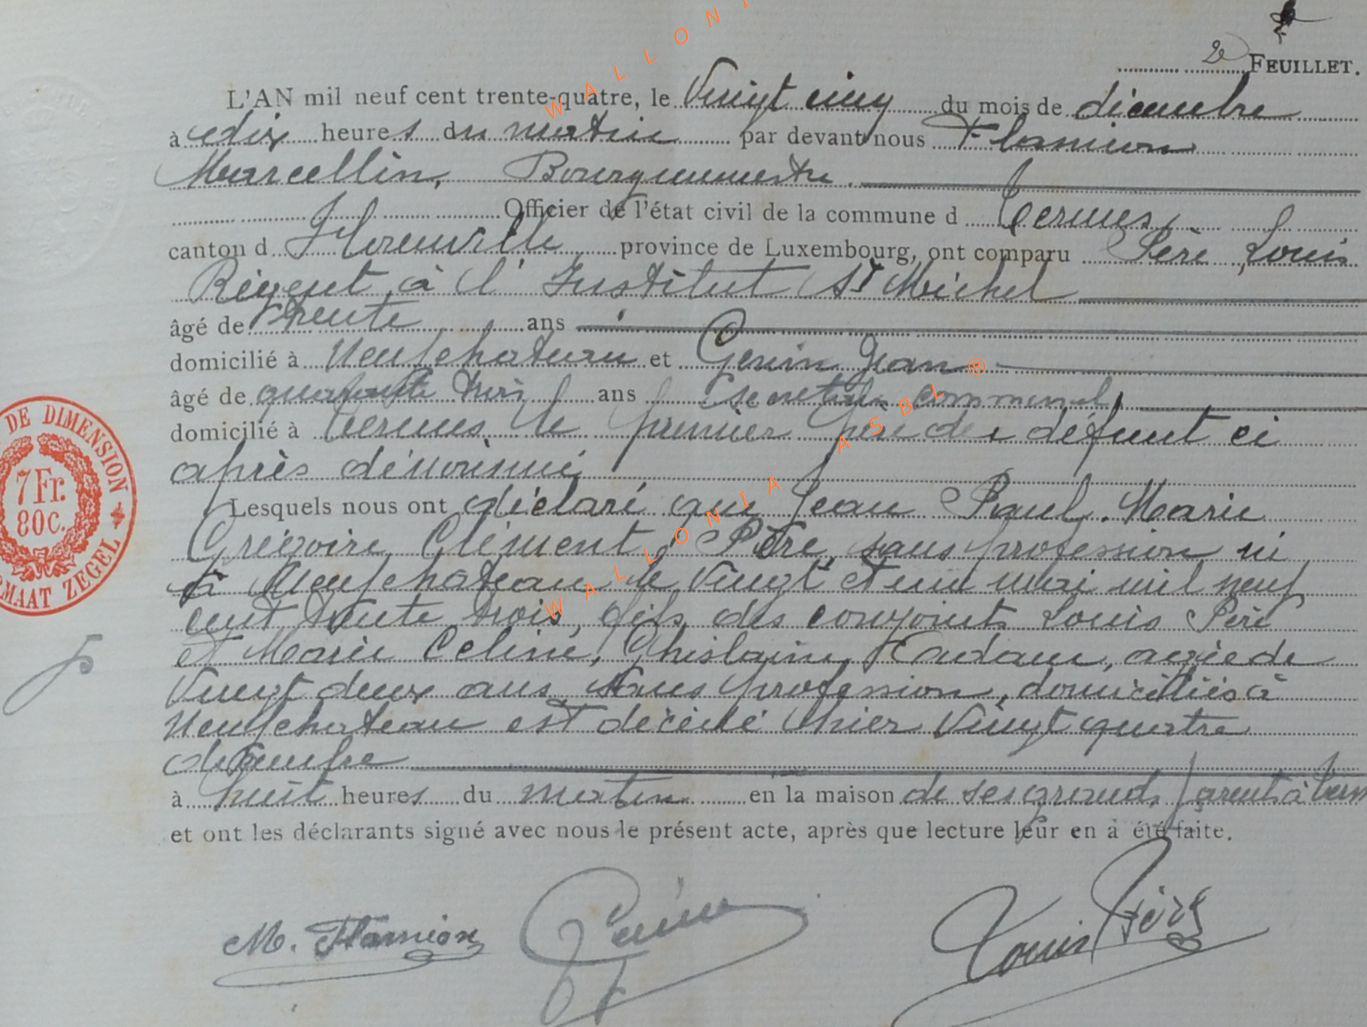 2e FEUILLET.
L'AN mil neuf cent trente-quatre, le Vingt cinq du mois de décembre
à dix heures du matin par devant nous Flamion
Marcellin, Bourgmestre.
Officier de l'état civil de la commune d Termes,
canton d Florenville province de Luxembourg, ont comparu Père, Louis
Régent à l'Institut St Michel
âgé de trente ans
domicilié à Neufchateau et Genin Jean
âgé de quarante trois ans secrétaire communal,
domicilié à Termes, le premier père du défunt ci
après dénommé
Lesquels nous ont déclaré que Jean Paul, Marie
Grégoire, Clément, Père, sans profession né
à Neufchateau le vingt et un mai mil neuf
cent trente trois, fils des conjoints Louis Père
et Marie Celine, Ghislaine, agée de
Vingt deux ans sans profession, domiciliés à
Neufchateau est décédé hier Vingt quatre
décembre
à huit heures du matin en la maison de ses grands parents à Term
et ont les déclarants signé avec nous le présent acte, après que lecture leur en à été faite.
DE DIMENSION
7 Fr.
80c.
MAAT ZEGEL
M. Flamion Genin Louis Père
WALLONIA ASBL ®
WALLONI